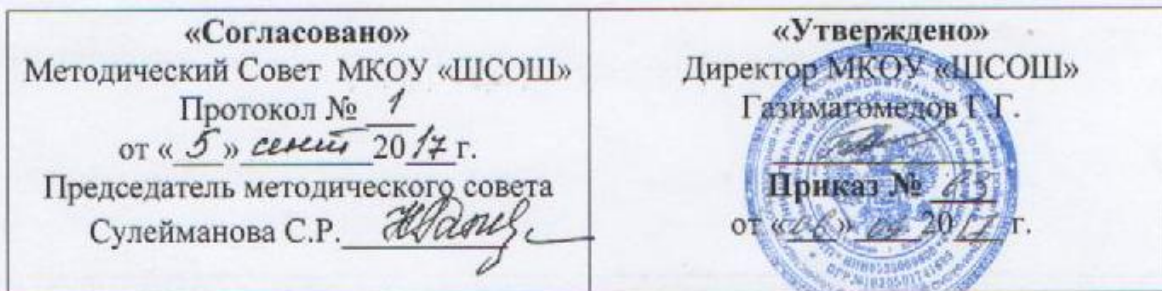 «Согласовано»
Методический Совет МКОУ «ШСОШ»
Протокол № 1
от « 5 » сент 2017 г.
Председатель методического совета
Сулейманова С.Р.
«Утверждено»
Директор МКОУ «ШСОШ»
Газимагомедов Г.Г.
Приказ № 63
от «06» 09 2017 г.